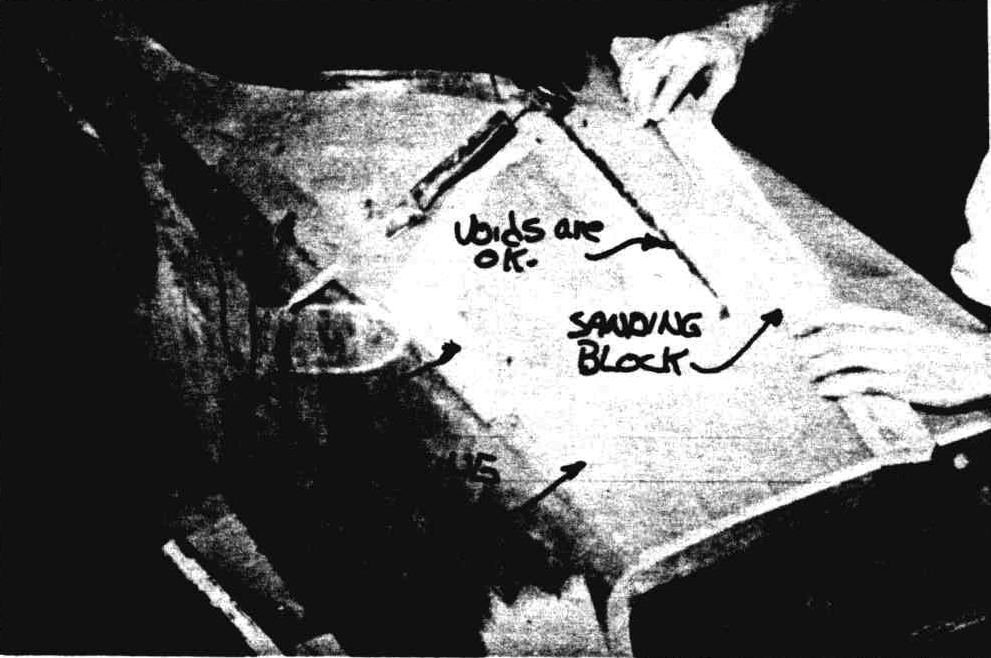 Voids are
OK.
SANDING
BLOCK